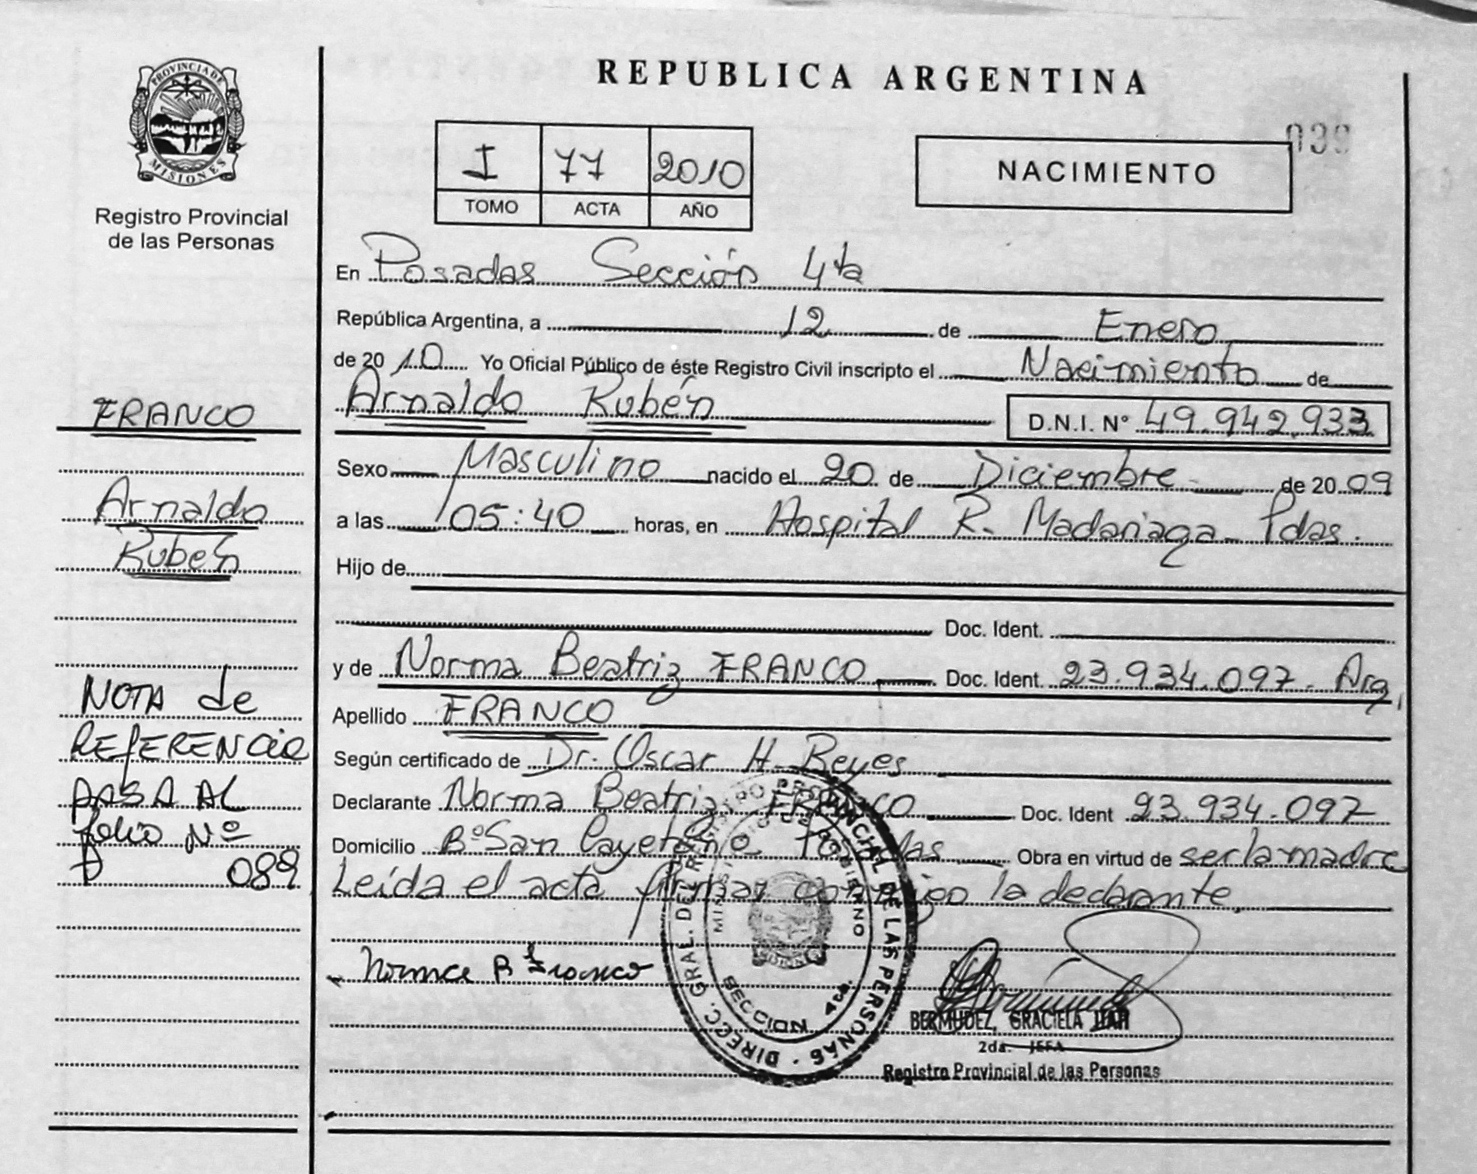 REPUBLICA ARGENTINA
PROVINCIA DE MISIONES
Registro Provincial
de las Personas
I 77 2010
TOMO ACTA AÑO
NACIMIENTO
039
En Posadas Sección 4ta
República Argentina, a 12 de Enero
de 2010 Yo Oficial Público de éste Registro Civil inscripto el Nacimiento de
Arnaldo Rubén D.N.I. N° 49.942.933
Sexo Masculino nacido el 20 de Diciembre de 2009
a las 05:40 horas, en Hospital R. Madariaga Pdas.
Hijo de
Doc. Ident.
y de Norma Beatriz FRANCO Doc. Ident. 23.934.097. Arg.
Apellido FRANCO
Según certificado de Dr. Oscar H. Reyes
Declarante Norma Beatriz FRANCO Doc. Ident 23.934.097
Domicilio B° San Cayetano Posadas Obra en virtud de ser la madre
Leída el acta firman conmigo la declarante.
Norma B Franco
BERMUDEZ, GRACIELA
2da. JEFA
Registro Provincial de las Personas
DIRECC. GRAL. DEL REGISTRO PROVINCIAL DE LAS PERSONAS
MINISTERIO DE GOBIERNO
SECCION 4ta.
FRANCO
Arnaldo
Rubén
NOTA de
REFERENCIA
PASA AL
folio Nº
089